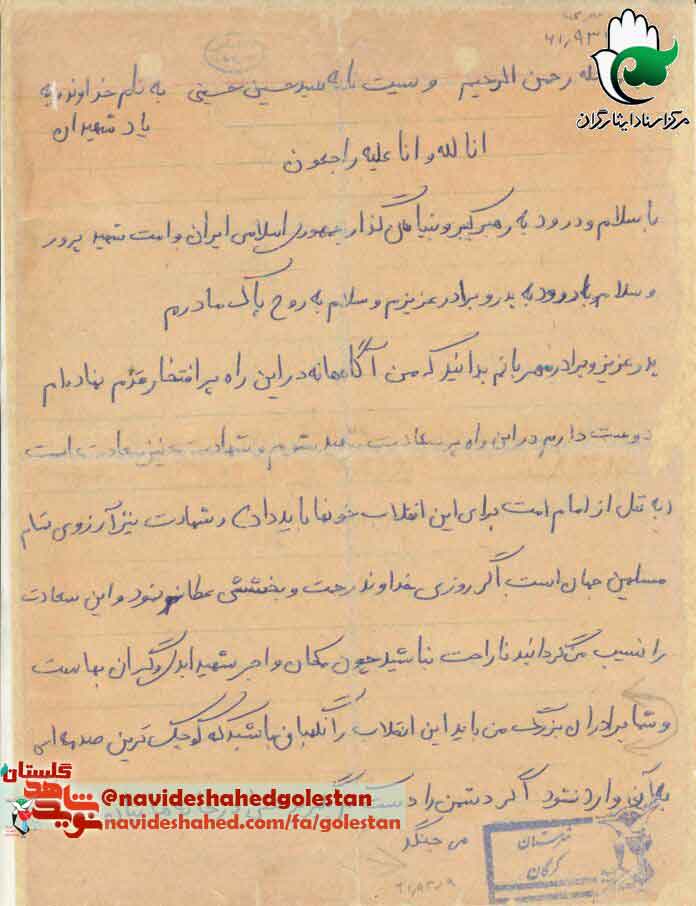 ۶۱٫۹۳
مرکز اسناد ایثارگران
بسم الله رحمن الرحیم وسیت نامه سید حسین حسینی به نام خداوند و به
یاد شهیدان
انا لله و انا علیه راجعون
با سلام و درود به رهبر کبیر و بنیان گذار جمهوری اسلامی ایران و امت شهید پرور
و سلام با درود به پدر و برادر عزیزم و سلام به روح پاک مادرم
پدر عزیز و برادر مهربانم بدانید که من آگاهانه در این راه پر افتخار قدم نهاده‌ام
دوست دارم در این راه پر سعادت شهید شوم و شهادت نیز سعادت است
(به قل از امام امت برای این انقلاب خونها باید داد) و شهادت نیز آرزوی تمام
مسلمین جهان است اگر روزی خداوند رحمت و بخششی عطا نمود و این سعادت
را نسیب من گردانید ناراحت نباشید چون مکان و اجر شهید ابدی و گران بها ست
و شما برادران بزرگ من باید این انقلاب را نگهبان باشید که کوچک ترین صدمه ای
به آن وارد نشود اگر دشمن را دست
می جنگد
گلستان
نوید شاهد
@navideshahedgolestan
navideshahed.com/fa/golestan
گرگان